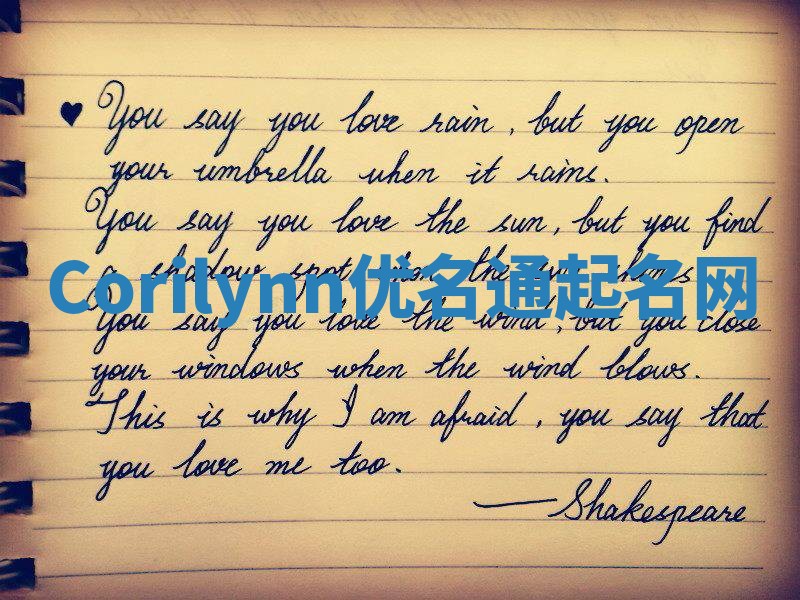 ♥ You say you love rain, but you open
your umbrella when it rains.
You say you love the sun, but you find
a shadow spot when the sun shines
Corilynn优名通起名网
You say you love the wind, but you close
your windows when the wind blows.
This is why I am afraid, you say that
you love me too.
—Shakespeare